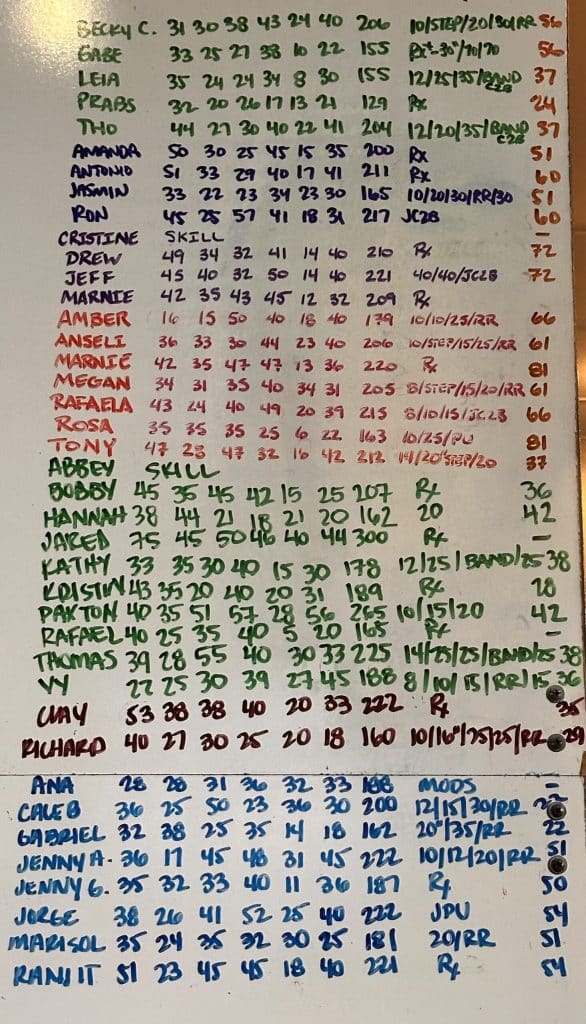 BECKY C. 31 30 38 43 24 40 206 10/STEP/20/30/RR 56
GABE 33 25 27 38 10 22 155 Rx+30"/70/70 56
LEIA 35 24 24 34 8 30 155 12/25/35/BAND C2B 37
PRABS 32 20 26 17 13 21 129 Rx 24
THO 44 27 30 40 22 41 204 12/20/35/BAND C2B 37
AMANDA 50 30 25 45 15 35 200 Rx 51
ANTONIO 51 33 29 40 17 41 211 Rx 60
JASMIN 33 22 23 34 23 30 165 10/20/30/RR/30 51
RON 45 25 57 41 18 31 217 JC2B 60
CRISTINE SKILL –
DREW 49 34 32 41 14 40 210 Rx 72
JEFF 45 40 32 50 14 40 221 40/40/JC2B 72
MARNIE 42 35 43 45 12 32 209 Rx
AMBER 16 15 50 40 18 40 179 10/10/25/RR 66
ANSELI 36 33 30 44 23 40 206 10/STEP/15/25/RR 61
MARNIE 42 35 47 47 13 36 220 Rx 81
MEGAN 34 31 35 40 34 31 205 8/STEP/15/20/RR 61
RAFAELA 43 24 40 49 20 39 215 8/10/15/JC2B 66
ROSA 35 35 35 25 6 22 163 10/25/PU 81
TONY 47 28 47 32 16 42 212 14/20"STEP/20 37
ABBEY SKILL
BOBBY 45 35 45 42 15 25 207 Rx 36
HANNAH 38 44 21 18 21 20 162 20 42
JARED 75 45 50 46 40 44 300 Rx –
KATHY 33 35 30 40 15 30 178 12/25/BAND/25 38
KRISTIN 43 35 20 40 20 31 189 Rx 28
PAXTON 40 35 51 57 28 56 265 10/15/20 42
RAFAEL 40 25 35 40 5 20 165 Rx –
THOMAS 39 28 55 40 30 33 225 14/25/25/BAND/25 38
VY 22 25 30 39 27 45 188 8/10/15/RR/15 36
CLAY 53 38 38 40 20 33 222 Rx 35
RICHARD 40 27 30 25 20 18 160 10/16"/25/25/RR 29
ANA 28 28 31 36 32 33 188 MODS –
CALEB 36 25 50 23 36 30 200 12/15/30/RR
GABRIEL 32 38 25 35 14 18 162 20"/35/RR 22
JENNY A. 36 17 45 48 31 45 222 10/12/20/RR 51
JENNY G. 35 32 33 40 11 36 187 Rx 50
JORGE 38 26 41 52 25 40 222 JPU 54
MARISOL 35 24 35 32 30 25 181 20/RR 51
RANJIT 51 23 45 45 18 40 221 Rx 54